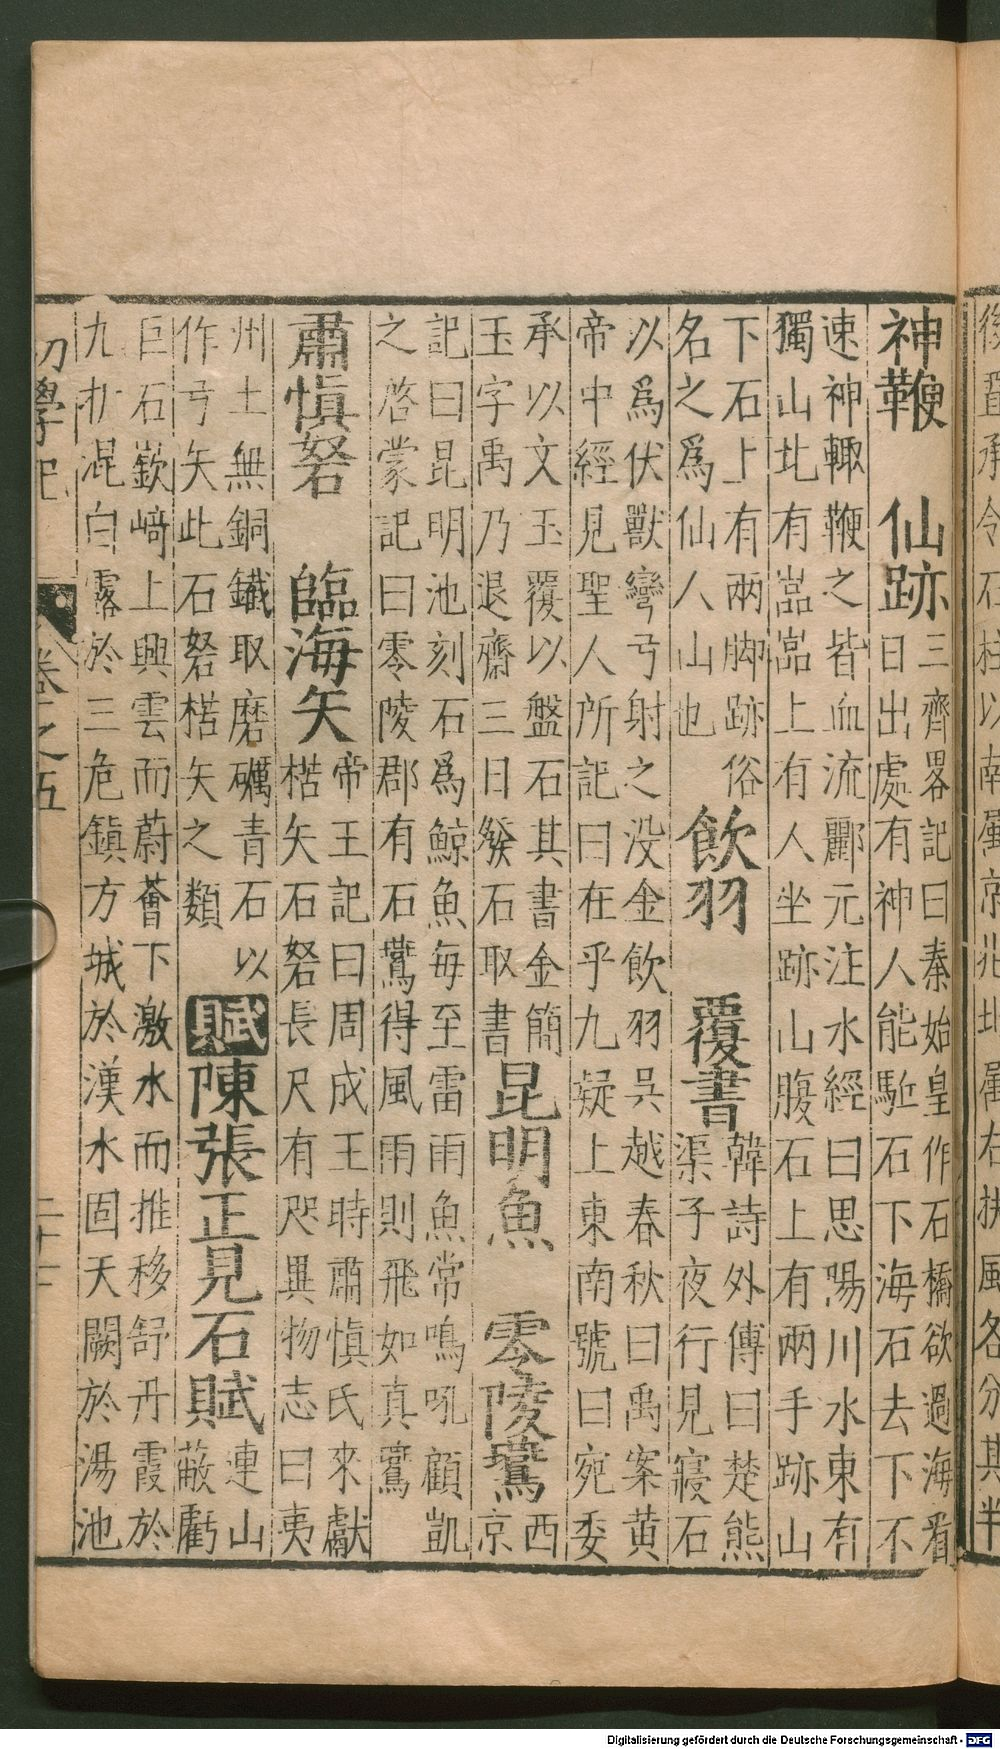 後置承令石柱以南屬京兆北屬右扶風各分其半
神鞭 仙跡
三齊畧記曰秦始皇作石橋欲過海看
日出處有神人能駈石下海石去下不
速神輙鞭之皆血流酈元注水經曰思陽川水東有
獨山北有嵓嵓上有人坐跡山腹石上有兩手跡山
下石上有兩脚跡俗
名之爲仙人山也
飲羽 覆書
韓詩外傳曰楚熊
渠子夜行見寢石
以爲伏獸彎弓射之没金飲羽吳越春秋曰禹案黄
帝中經見聖人所記曰在乎九疑上東南號曰宛委
承以文玉覆以盤石其書金簡
玉字禹乃退齋三日發石取書
昆明魚 零陵鷰
西
京
記曰昆明池刻石爲鯨魚毎至雷雨魚常鳴吼顧凱
之啓蒙記曰零陵郡有石鷰得風雨則飛如真鷰
肅慎砮 臨海矢
帝王記曰周成王時肅慎氏來獻
楛矢石砮長尺有咫異物志曰夷
州土無銅鐵取磨礪青石以
作弓矢此石砮楛矢之類
賦陳張正見石賦
連山
蔽虧
巨石嶔﨑上興雲而蔚薈下激水而推移舒丹霞於
九折混白露於三危鎮方城於漢水固天闕於湯池
初學記 卷之五
Digitalisierung gefördert durch die Deutsche Forschungsgemeinschaft - DFG